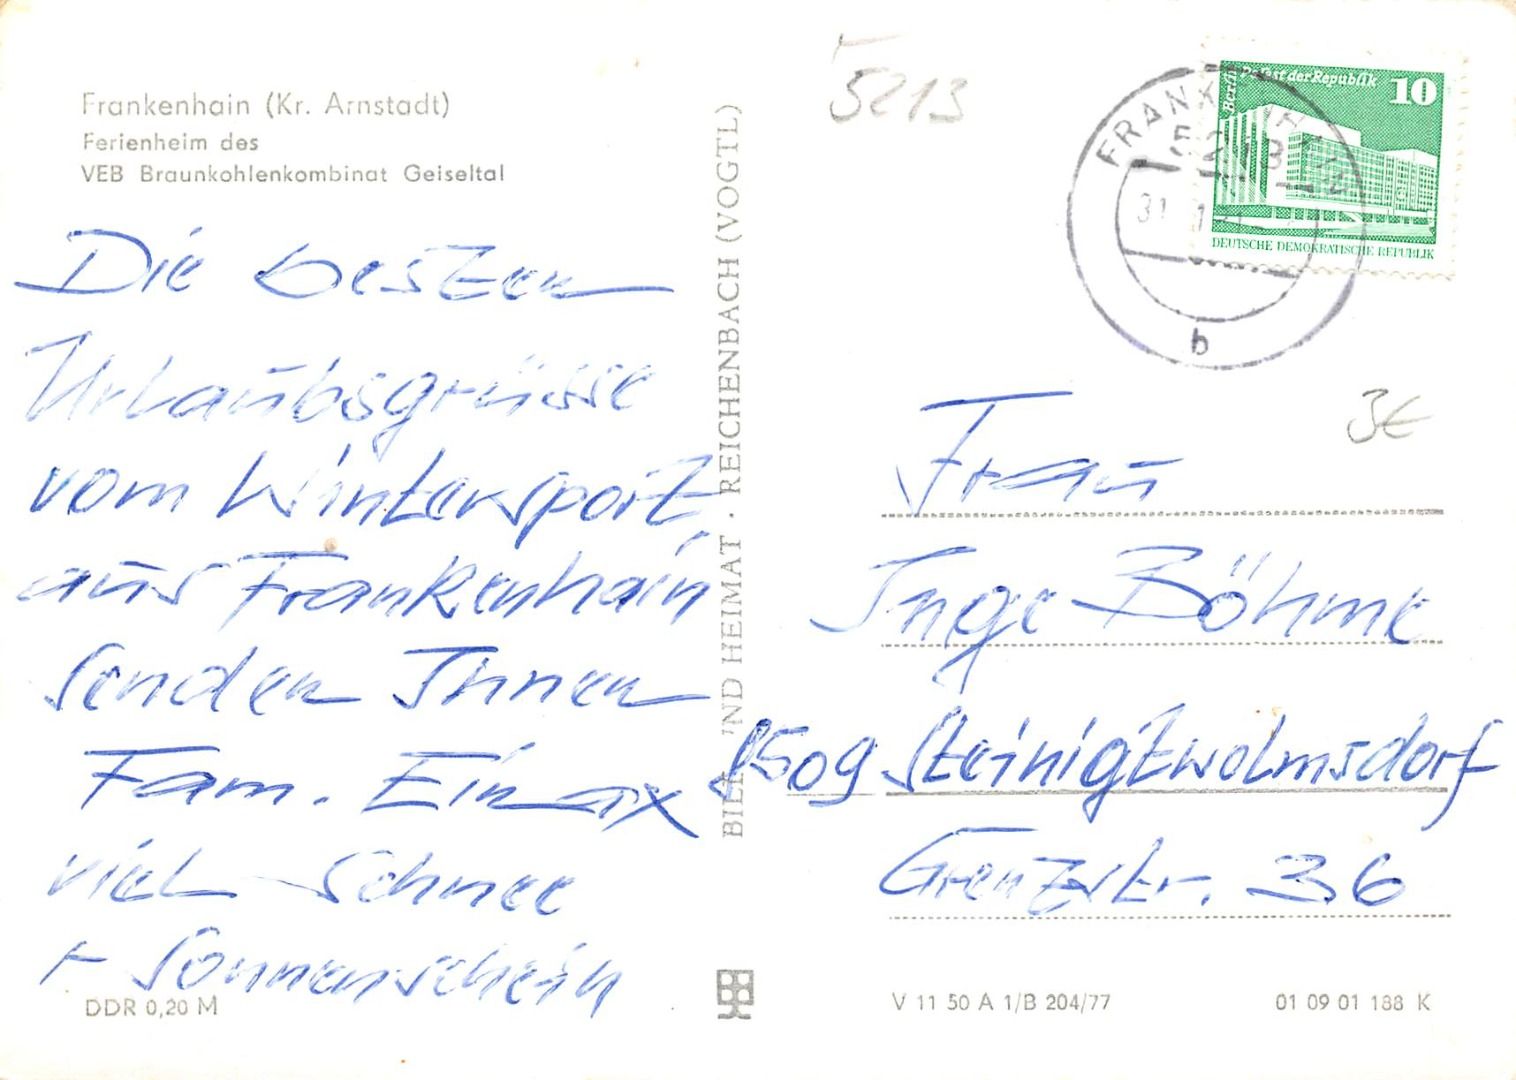 Frankenhain (Kr. Arnstadt)
Ferienheim des
VEB Braunkohlenkombinat Geiseltal
Die besten
Urlaubsgrüsse
vom Wintersport,
aus Frankenhain
senden Ihnen
Fam. Einax
viel Schnee
+ Sonnenschein
DDR 0,20 M
BILD UND HEIMAT · REICHENBACH (VOGTL)
5213
Berlin Palast der Republik
10
DEUTSCHE DEMOKRATISCHE REPUBLIK
FRANKENHAIN
5213
31
b
3€
Frau
Inge Böhme
8509 Steinigtwolmsdorf
Grenzstr. 36
V 11 50 A 1/B 204/77
01 09 01 188 K